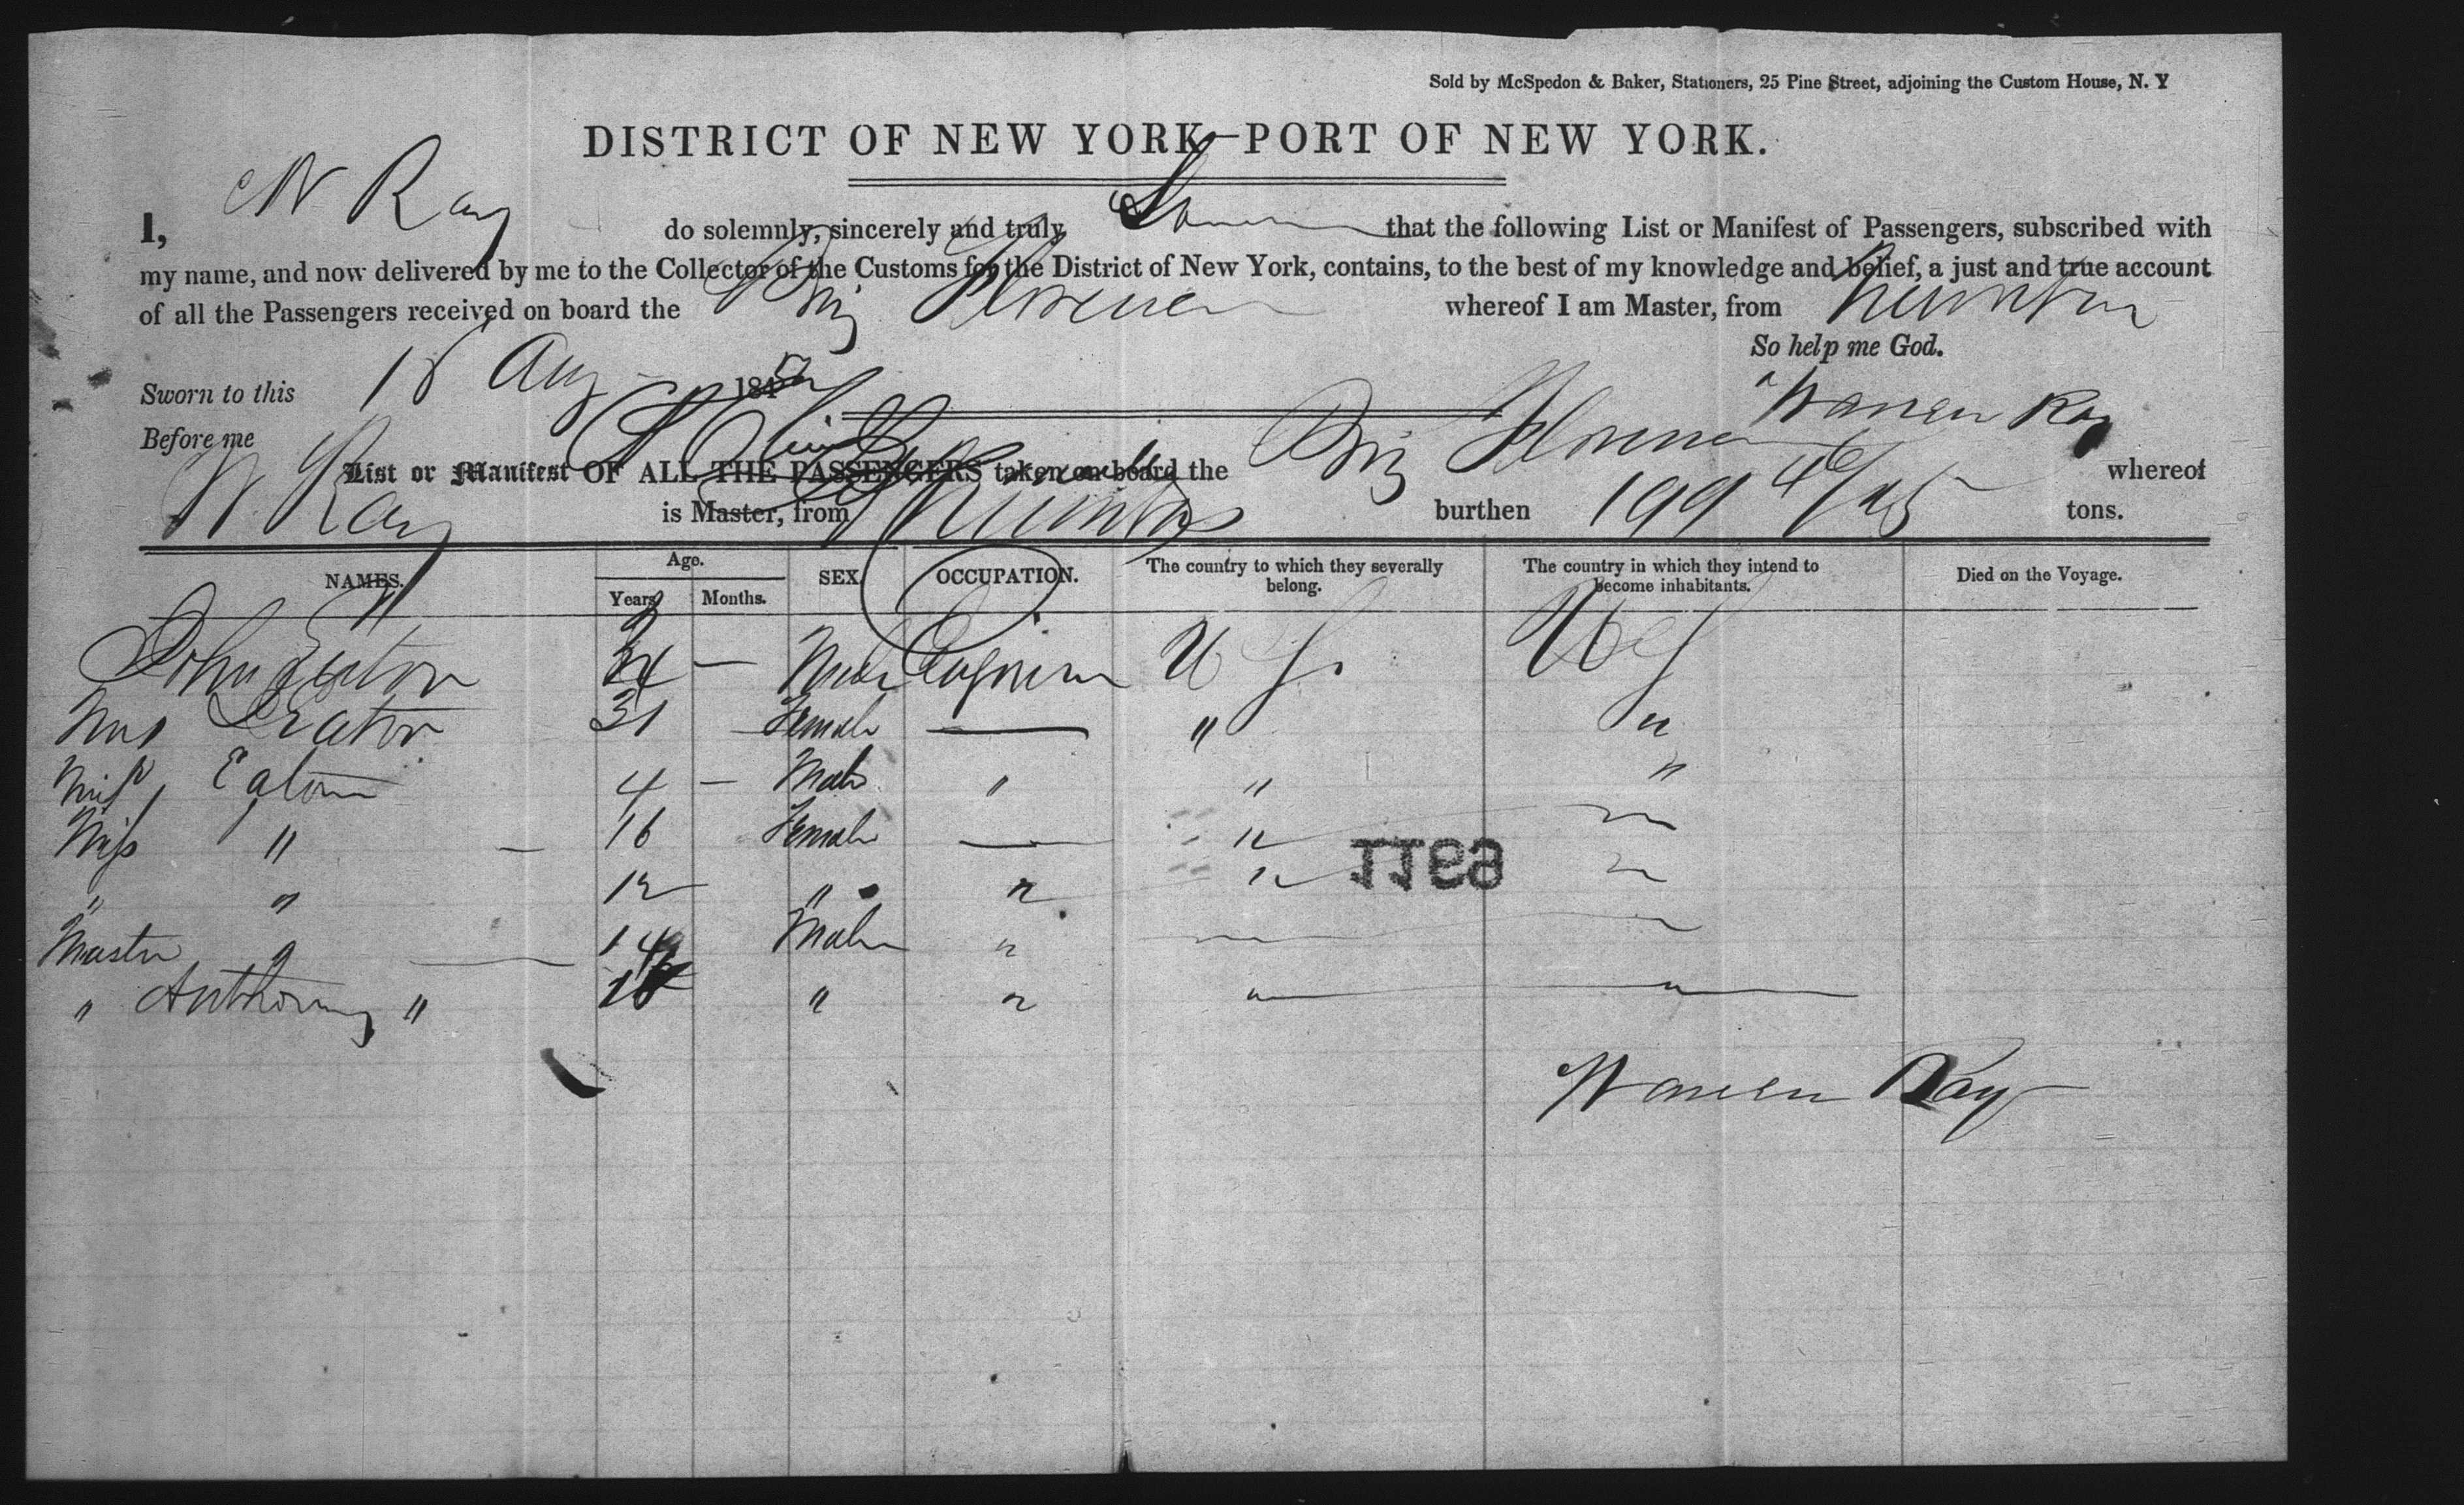 Sold by McSpedon & Baker, Stationers, 25 Pine Street, adjoining the Custom House, N. Y
DISTRICT OF NEW YORK—PORT OF NEW YORK.
I, W Ray do solemnly, sincerely and truly Swear that the following List or Manifest of Passengers, subscribed with
my name, and now delivered by me to the Collector of the Customs for the District of New York, contains, to the best of my knowledge and belief, a just and true account
of all the Passengers received on board the Brig Florence whereof I am Master, from
So help me God.
Sworn to this 18 Aug 184
Warren Ray
Before me
List or Manifest OF ALL THE PASSENGERS taken on board the Brig Florence whereof
W Ray is Master, from burthen 199 tons.
NAMES. Age. Years Months. SEX. OCCUPATION. The country to which they severally belong. The country in which they intend to become inhabitants. Died on the Voyage.
John Eaton — Male U S. U S
Mrs Eaton 31 Female — " "
Eaton 4 — Male " " "
Miss " — 16 Female — " "
" " 12 " " " "
Master " 14 Male " " "
" Anthony " " " " "
6911
Warren Ray